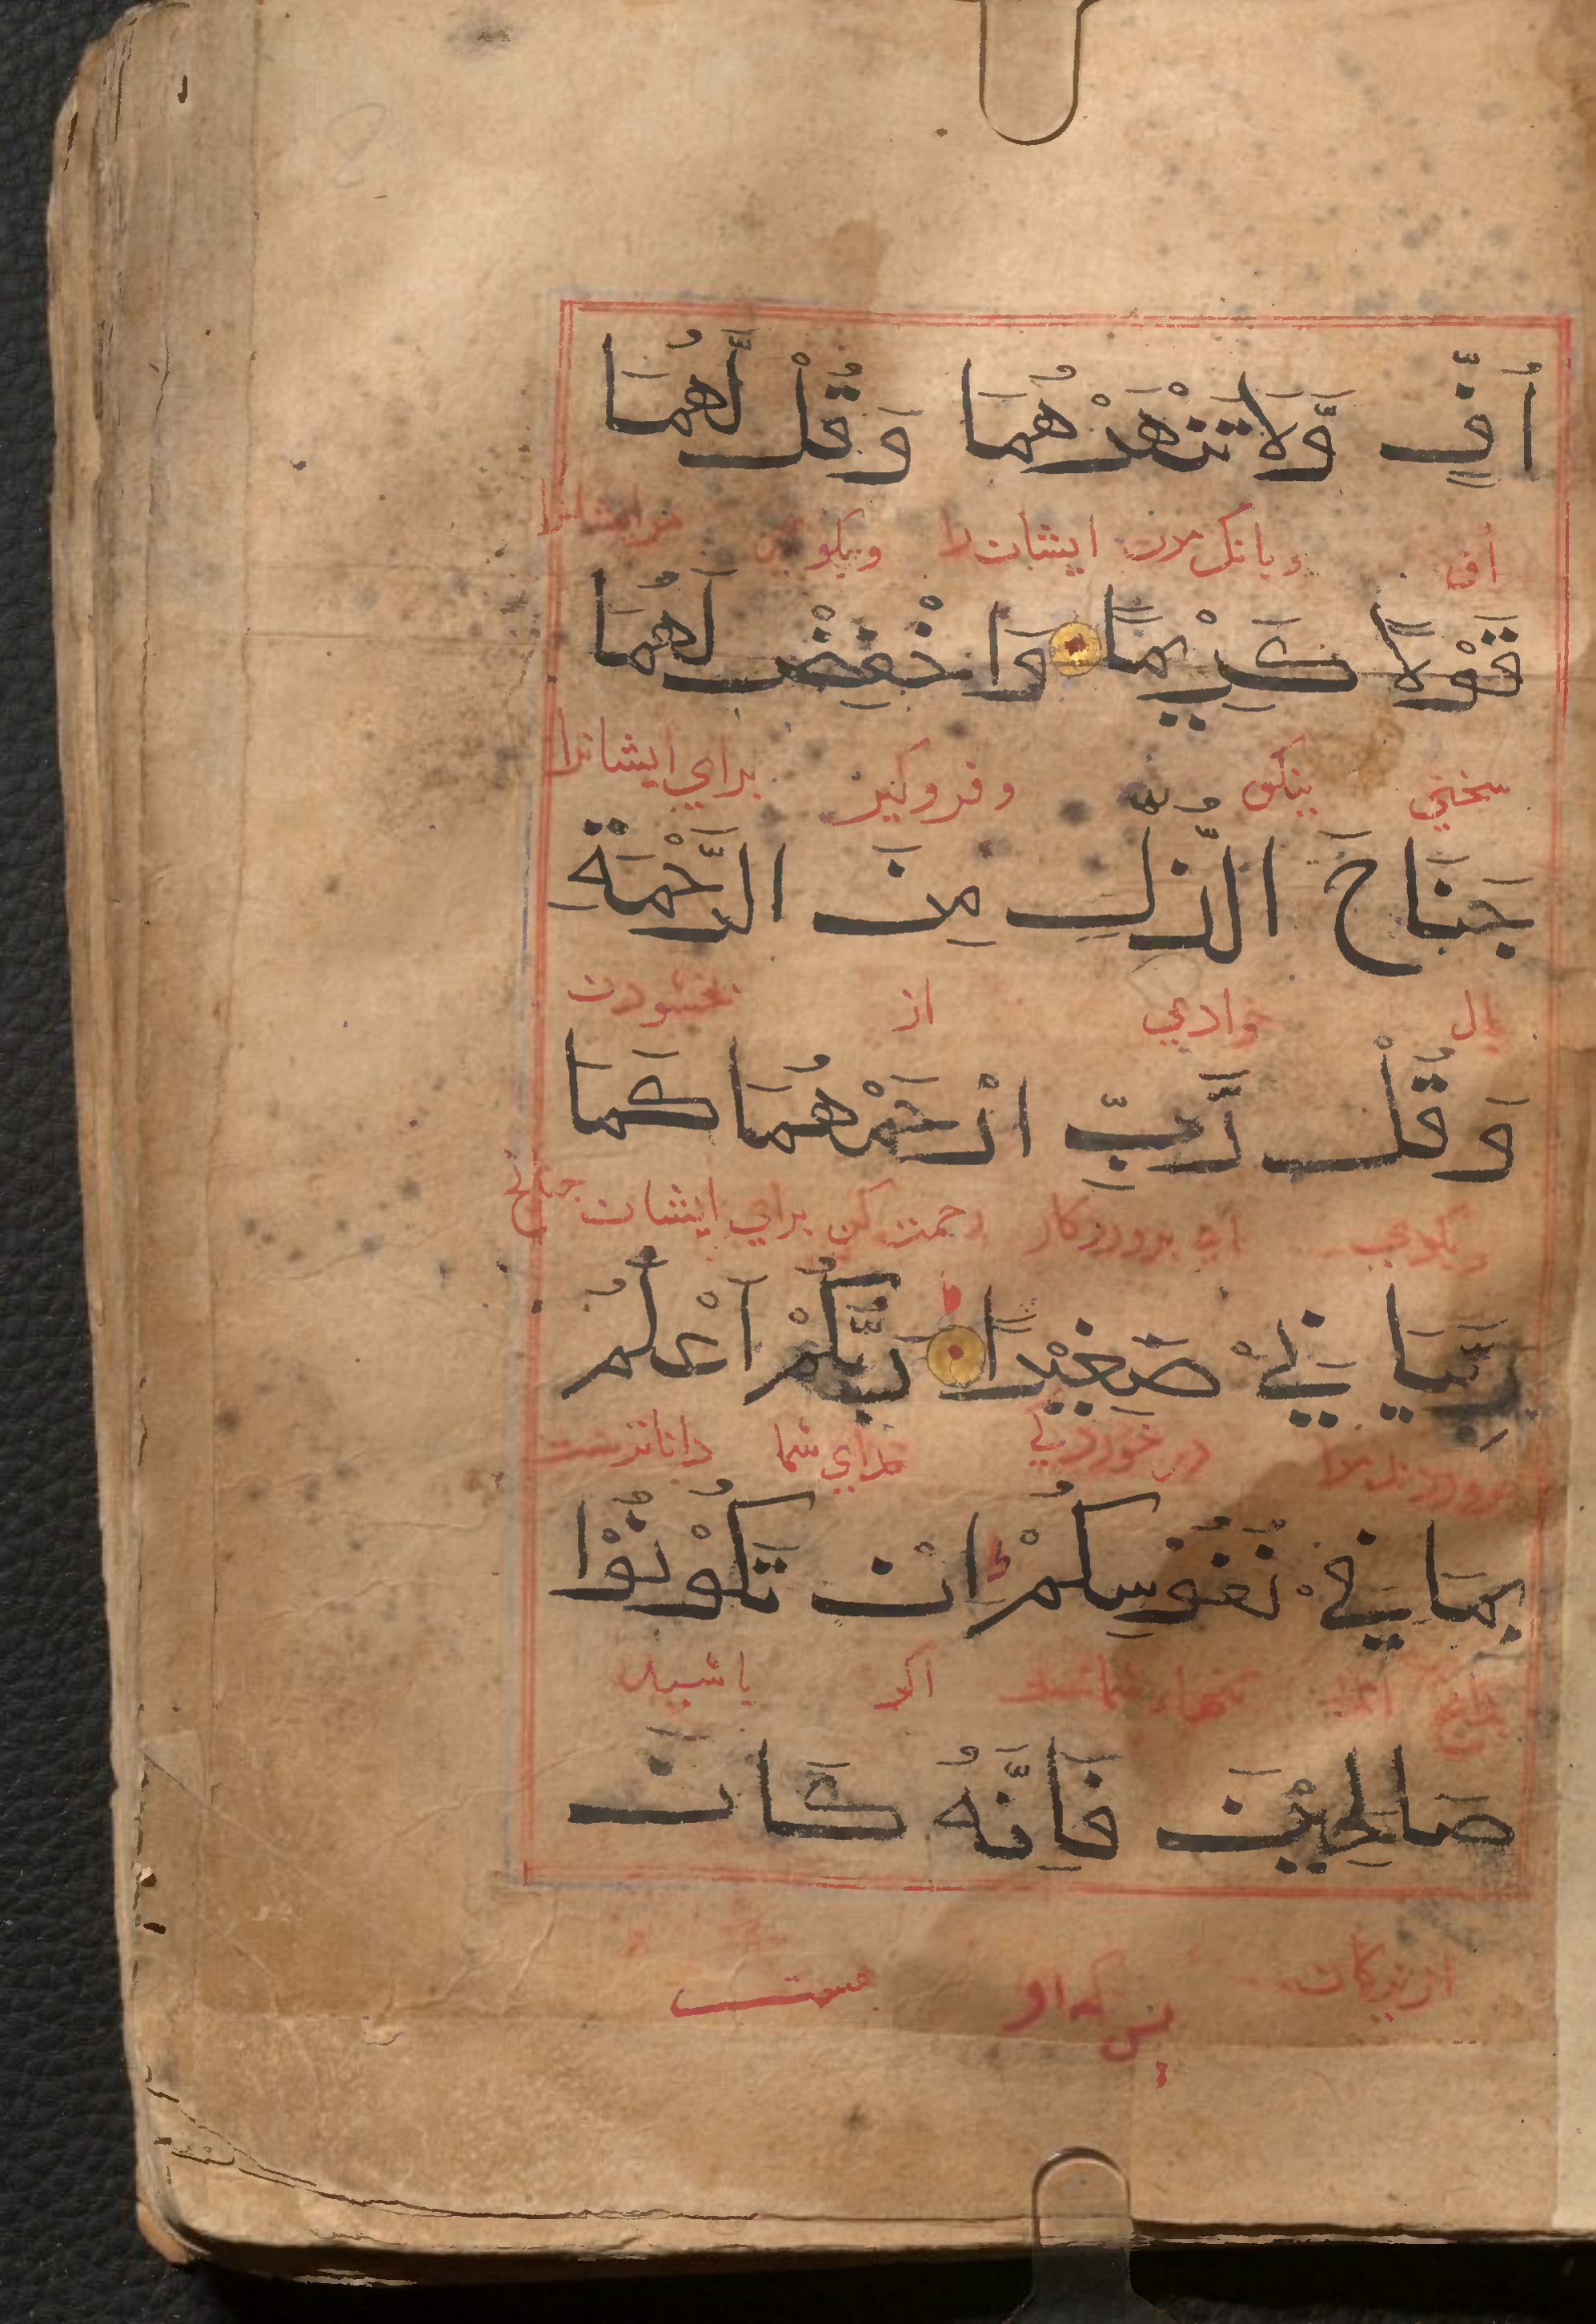 اُفٍّ وَّلَا تَنْهَرْهُمَا وَقُلْ لَّهُمَا
اف وبانک مزن ایشان را وبکوی مرایشانرا
قَوْلًا كَرِيْمًا وَاخْفِضْ لَهُمَا
سخنی نیکو وفروکیر برای ایشانرا
جَنَاحَ الذُّلِّ مِنَ الرَّحْمَةِ
بال خوادی از بخشودن
وَقُلْ رَّبِّ ارْحَمْهُمَا كَمَا
وبکوی ای پروردکار رحمت کن برای ایشان چنانچ
رَبَّيَانِيْ صَغِيْرًا رَبُّكُمْ اَعْلَمُ
در خوردی خدای شما داناترست
بِمَا فِيْ نُفُوْسِكُمْ اِنْ تَكُوْنُوْا
اکر باشید
صَالِحِيْنَ فَاِنَّهٗ كَانَ
از نیکان پس که او هست